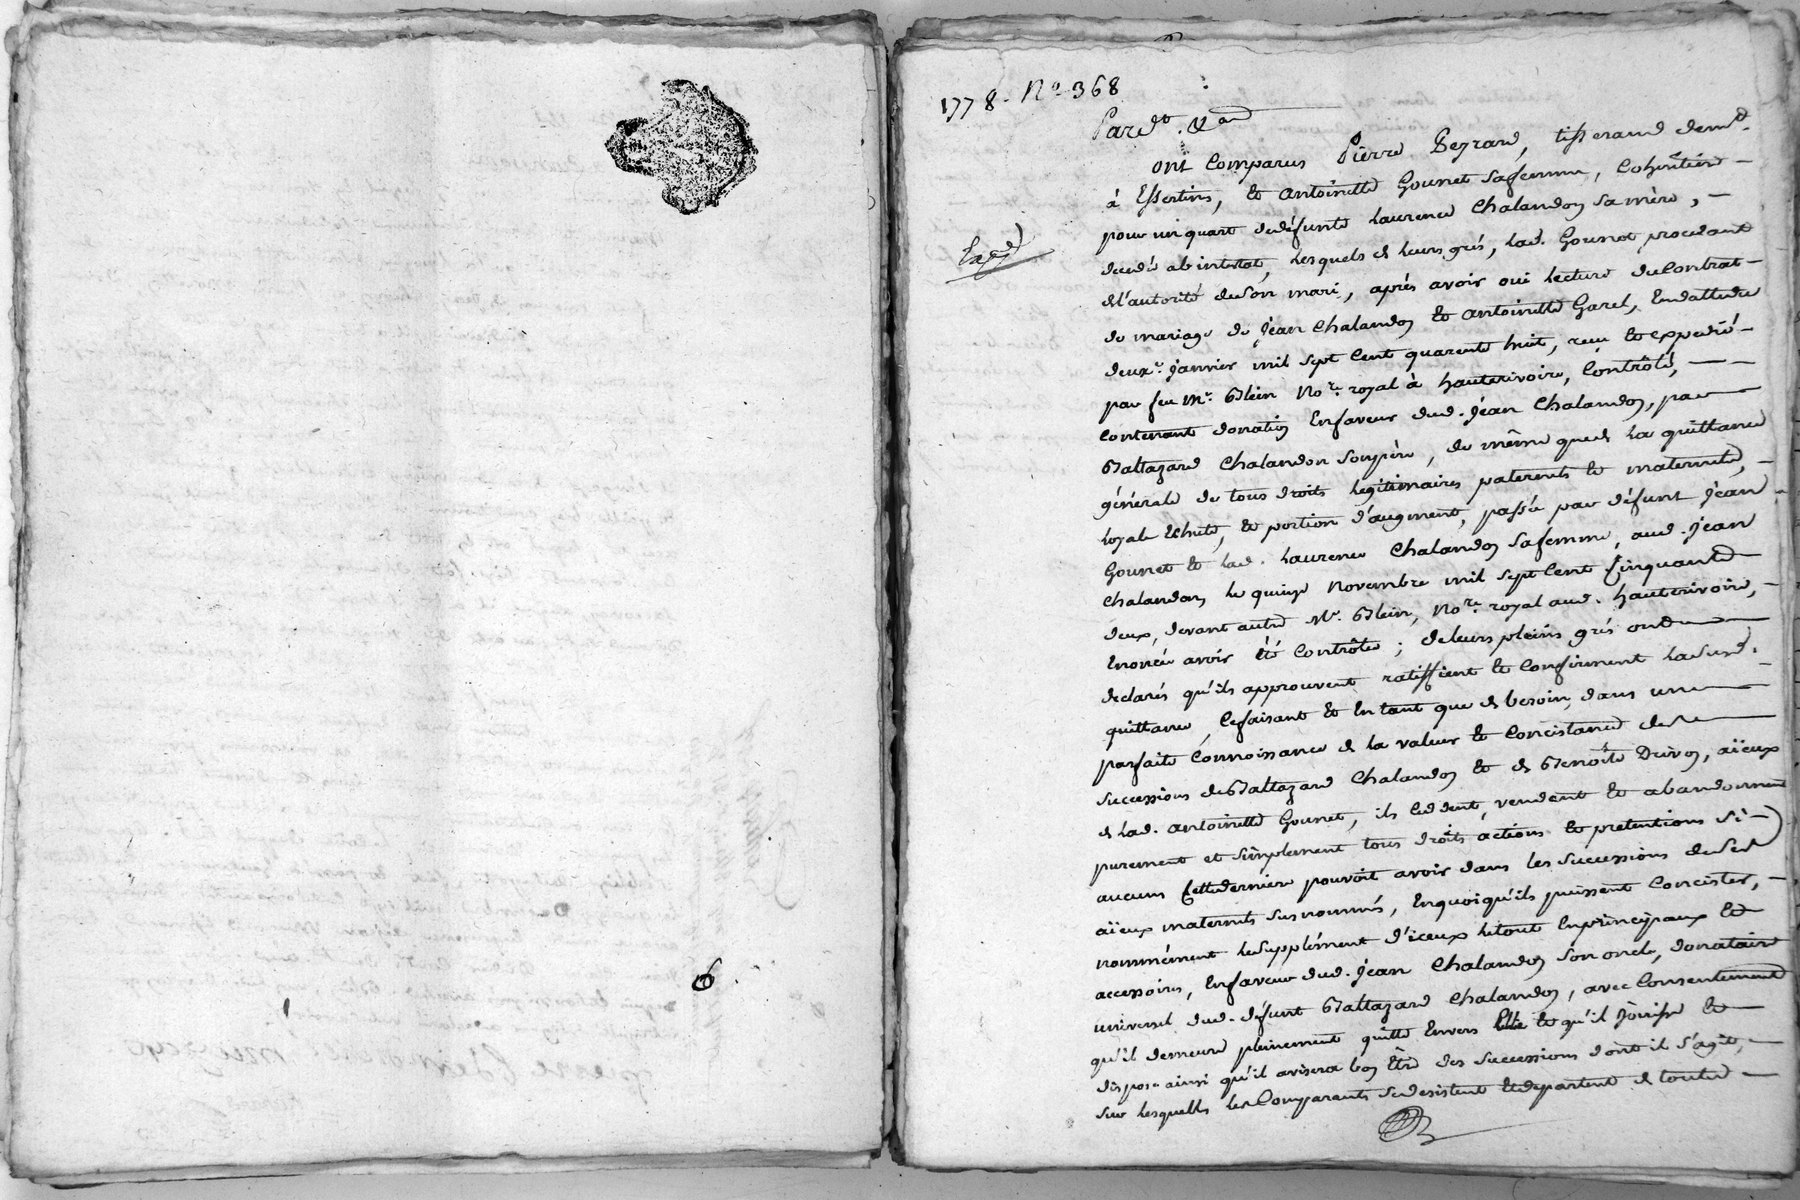 6
1778. No 368
Expd
Pardt. &a
ont Comparus Pierre Peyrard, tisserand demt.
à Essertins, et antoinette Gounet safemme, Cohéritière
pour un quart dedéfunte Laurence Chalandon samère,
decedée abintestat, lesquels de leurs grés, lad. Gounet procedant
del'autorité deson mari, après avoir oui lecture duContrat
de mariage de jean Chalandon et antoinette Garel, Endattedu
deuxe. janvier mil sept Cent quarente huit, reçu et expedié
par feu Me. Blein Nore. royal à hauterivoire, Contrôlé,
Contenant donation Enfaveur dud. jean Chalandon, par
Baltazard Chalandon sonpère, de même quede la quittance
générale de tous droits legitimaires paternels et maternels,
loyale Echute, et portion d'augment, passée par défunt jean
Gounet et lad. Laurence Chalandon safemme, aud. jean
Chalandon le quinze Novembre mil sept Cent Cinquante
deux, devant autre Me. Blein, Nore. royal aud. hauterivoire,
Enoncée avoir été Contrôlée; deleurs pleins grés ont
declarés qu'ils approuvent ratiffient et Confirment laSusd.
quittance, Cefaisant et En tant que de besoin, dans une
parfaite Connoissance de la valeur et Concistance des
successions deBaltazard Chalandon et de Benoîte Drivon, aïeux
de lad. antoinette Gounet, ils Cedent, vendent et abandonnent
purement et simplement tous droits, actions et pretentions Si
aucuns Cettederniere pouvoit avoir dans les successions deSes
aïeux maternels susnommés, Enquoiqu'ils puissent Concister,
nommément lesupplément d'iceux letout Enprincipaux et
accessoires, Enfaveur dud. jean Chalandon son oncle, donataire
universel dud. défunt Baltazard Chalandon, avec Consentement
qu'il demeure pleinement quitte Envers Elle et qu'il Jouisse et
dispose ainsi qu'il avisera bon Être des successions dont il s'agit,
sur lesquelles lesComparants sedesistent etdepartent de toutes